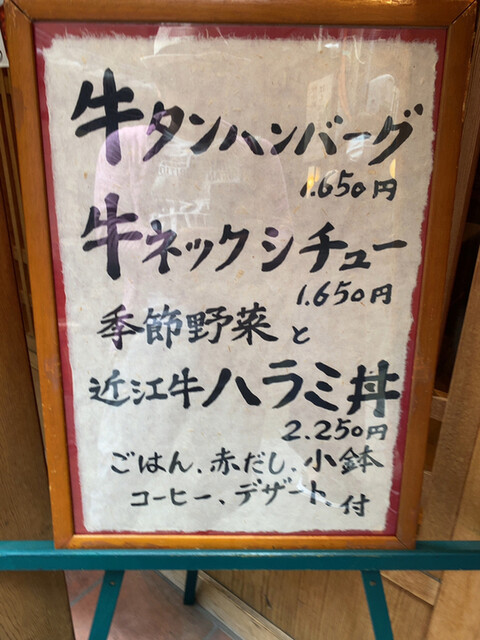 牛タンハンバーグ
1.650円
牛ネックシチュー
1.650円
季節野菜と
近江牛ハラミ丼
2.250円
ごはん、赤だし、小鉢
コーヒー、デザート、付